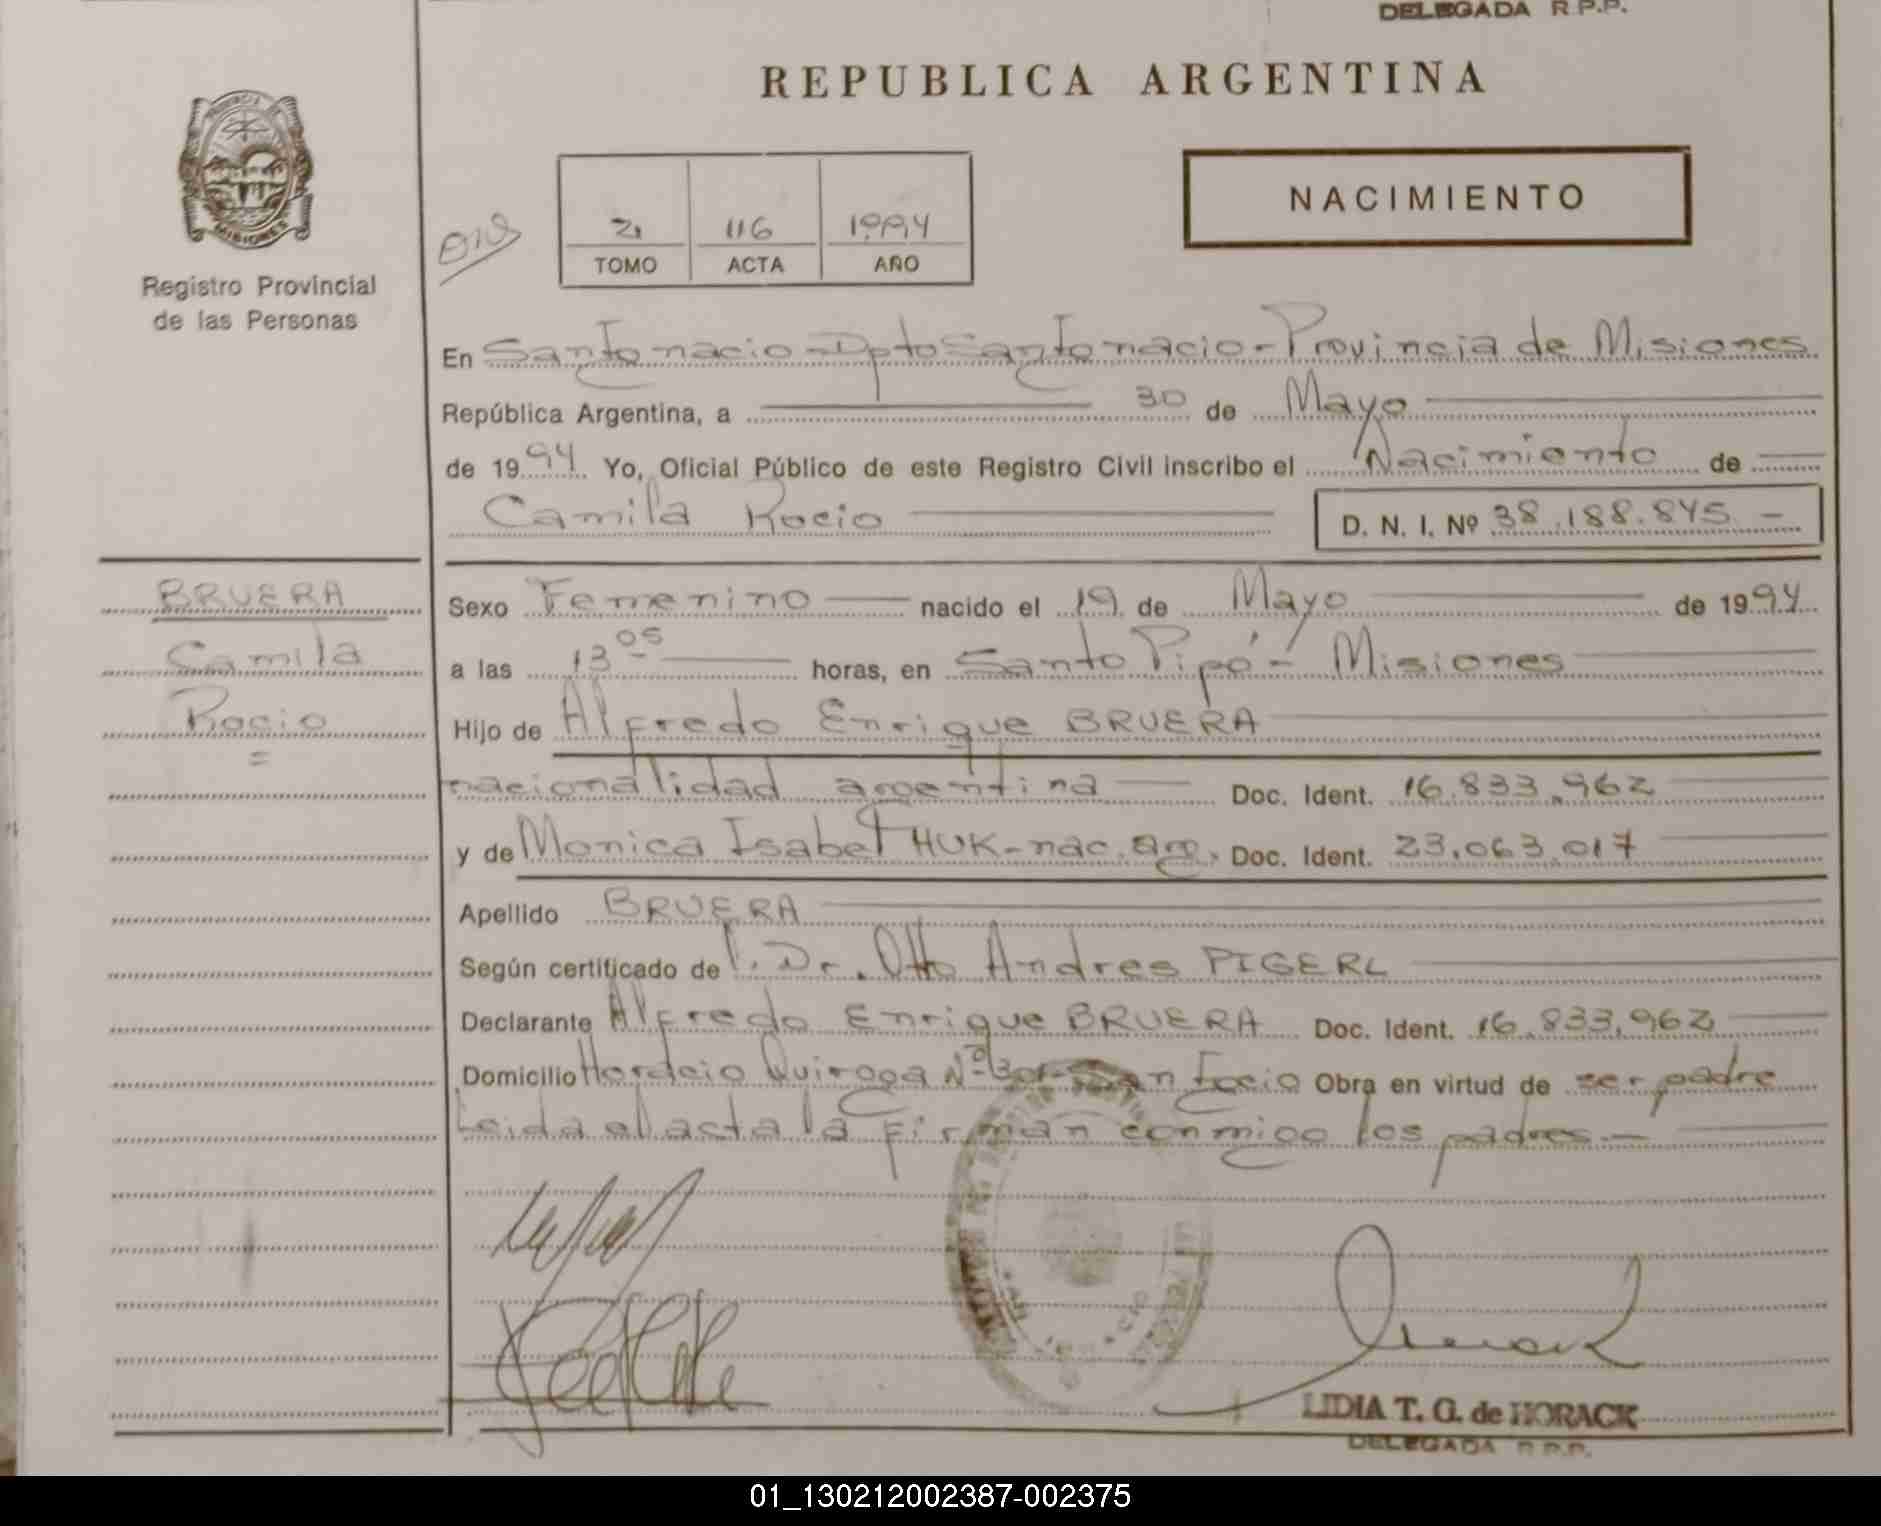 DELEGADA R.P.P.
REPUBLICA ARGENTINA
PROVINCIA
MISIONES
Registro Provincial
de las Personas
2 116 1994
TOMO ACTA AÑO
NACIMIENTO
En San Ignacio - Dpto San Ignacio - Provincia de Misiones
República Argentina, a 30 de Mayo
de 1994 Yo, Oficial Público de este Registro Civil inscribo el Nacimiento de
Camila Rocio D. N. I. Nº 38.188.845 -
BRUERA
Camila
Rocio
=
Sexo Femenino nacido el 19 de Mayo de 1994
a las 13 05 horas, en Santo Pipó - Misiones
Hijo de Alfredo Enrique BRUERA
nacionalidad argentina Doc. Ident. 16.833.962
y de Monica Isabel HUK - nac. arg. Doc. Ident. 23.063.017
Apellido BRUERA
Según certificado de Dr. Otto Andres PIGERL
Declarante Alfredo Enrique BRUERA Doc. Ident. 16.833.962
Domicilio Horacio Quiroga Nº San Obra en virtud de ser padre
Leida el acta la firman conmigo los padres.-
LIDIA T. G. de HORACK
DELEGADA R.P.P.
01_130212002387-002375